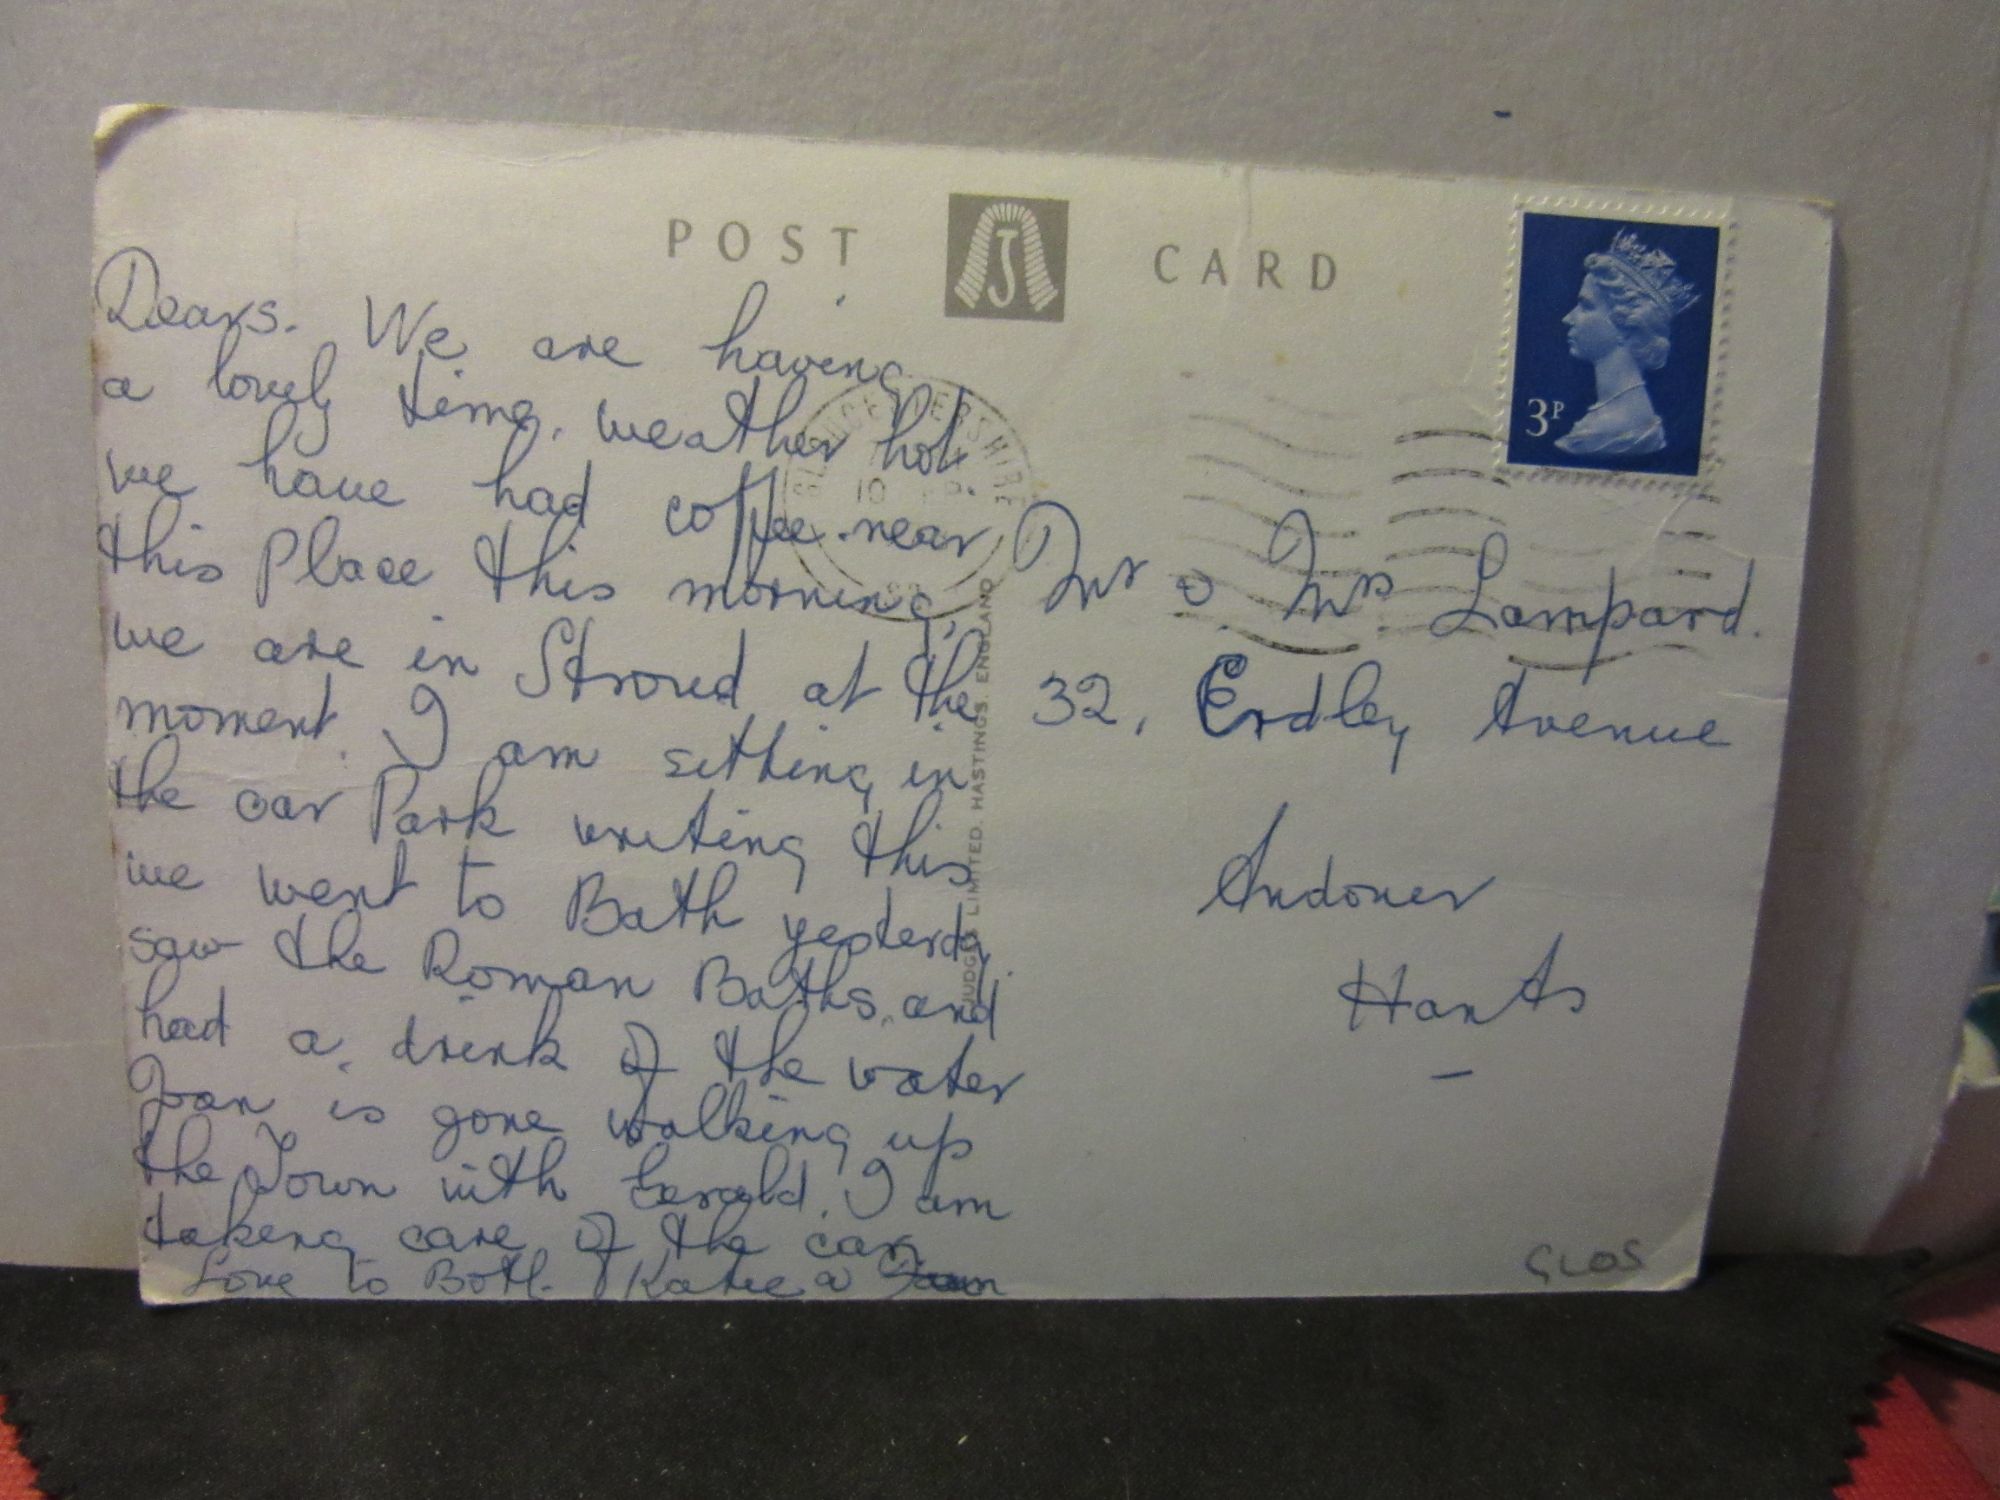 POST CARD
Dears. We are having
a lovely time, weather hot
we have had coffee near
this Place this morning,
we are in Stroud at the
moment. I am sitting in
the car Park writing this
we went to Bath yesterday
saw the Roman Baths, and
had a drink of the water
Joan is gone walking up
the Town with Gerald. I am
taking care of the car
Love to Both. Katie
3P
GLOUCESTERSHIRE
10
Mr & Mrs Lampard.
32, Erdley Avenue
Andover
Hants
JUDGES LIMITED. HASTINGS. ENGLAND
GLOS